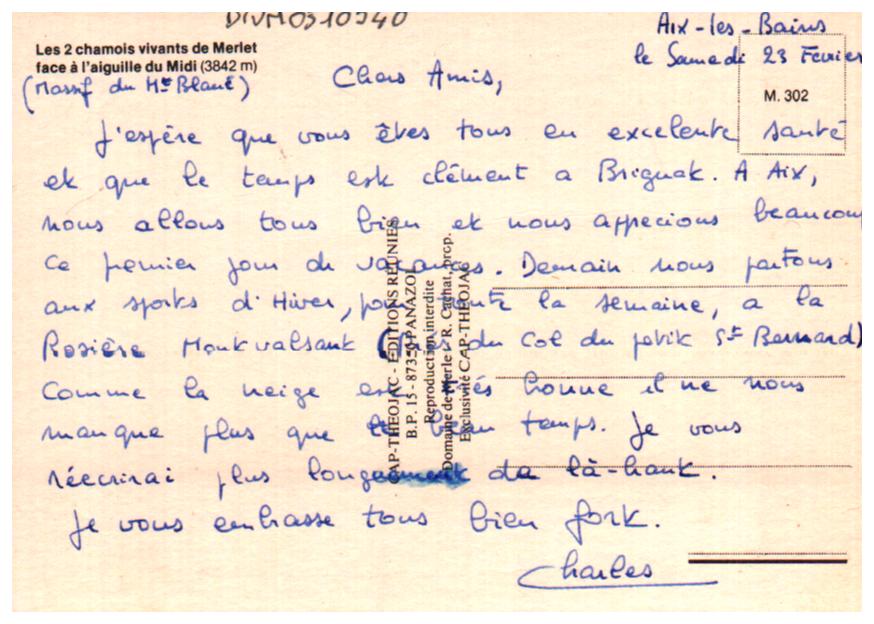 DIVM0310940
Aix-les-Bains
le Samedi 23 Fevrier
Les 2 chamois vivants de Merlet
face à l'aiguille du Midi (3842 m)
(Massif du Mt Blanc)
M. 302
Chers Amis,
J'espère que vous êtes tous en excelente santé
et que le temps est clément a Brignak. A Aix,
nous allons tous bien et nous apprecions beaucoup
ce premier jour de vacances. Demain nous partons
aux sports d'Hiver, pour toute la semaine, a la
Rosière Montvalsant (près du Col du petit St Bernard)
Comme la neige est très bonne il ne nous
manque plus que le bien temps. Je vous
réecrirai plus longuement de là-haut.
Je vous embrasse tous bien fort.
Charles
CAP-THEOJAC - EDITIONS REUNIES
B.P. 15 - 87350 PANAZOL
Reproduction interdite
Domaine de Merle - R. Cachat, prop.
Exclusivité CAP-THEOJAC